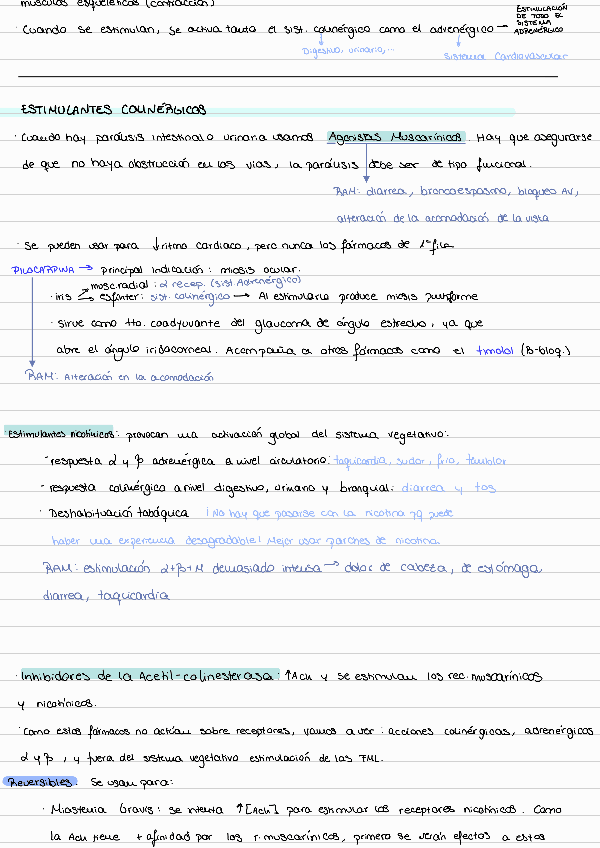 músculos esqueléticos (contracción)
· Cuando se estimulan, se activa tanto el sist. colinérgico como el adrenérgico → ESTIMULACIÓN DE TODO EL SISTEMA ADRENÉRGICO
Digestivo, urinario,...
Sistema Cardiovascular
ESTIMULANTES COLINÉRGICOS
· Cuando hay parálisis intestinal o urinaria usamos Agonistas Muscarínicos. Hay que asegurarse
de que no haya obstrucción en las vías, la parálisis debe ser de tipo funcional.
RAM: diarrea, broncoespasmo, bloqueo AV,
alteración de la acomodación de la vista
· Se pueden usar para ↓ritmo cardiaco, pero nunca los fármacos de 1ª fila
PILOCARPINA → principal indicación: miosis ocular.
musc.radial: α recep. (sist. Adrenérgico)
· iris esfínter: sist. colinérgico → Al estimularla produce miosis puntiforme
· sirve como tto. coadyuvante del glaucoma de ángulo estrecho, ya que
abre el ángulo iridocorneal. Acompaña a otros fármacos como el timolol (B-bloq.)
RAM: Alteración en la acomodación
Estimulantes nicotínicos: provocan una activación global del sistema vegetativo:
· respuesta α y β adrenérgica a nivel circulatorio: taquicardia, sudor, frío, temblor
· respuesta colinérgica a nivel digestivo, urinario y bronquial: diarrea y tos
· Deshabituación tabáquica ¡No hay que pasarse con la nicotina pq puede
haber una experiencia desagradable! Mejor usar parches de nicotina.
RAM: estimulación α+β+M demasiado intensa → dolor de cabeza, de estómago
diarrea, taquicardia
· Inhibidores de la Acetil-colinesterasa: ↑Ach y se estimulan los rec. muscarínicos
y nicotínicos.
· Como estos fármacos no actúan sobre receptores, vamos a ver: acciones colinérgicas, adrenérgicas
α y β, y fuera del sistema vegetativo estimulación de las FML.
Reversibles. Se usan para:
· Miastenia Gravis: se intenta ↑[Ach] para estimular los receptores nicotínicos. Como
la Ach tiene + afinidad por los r. muscarínicos, primero se verán efectos a estos